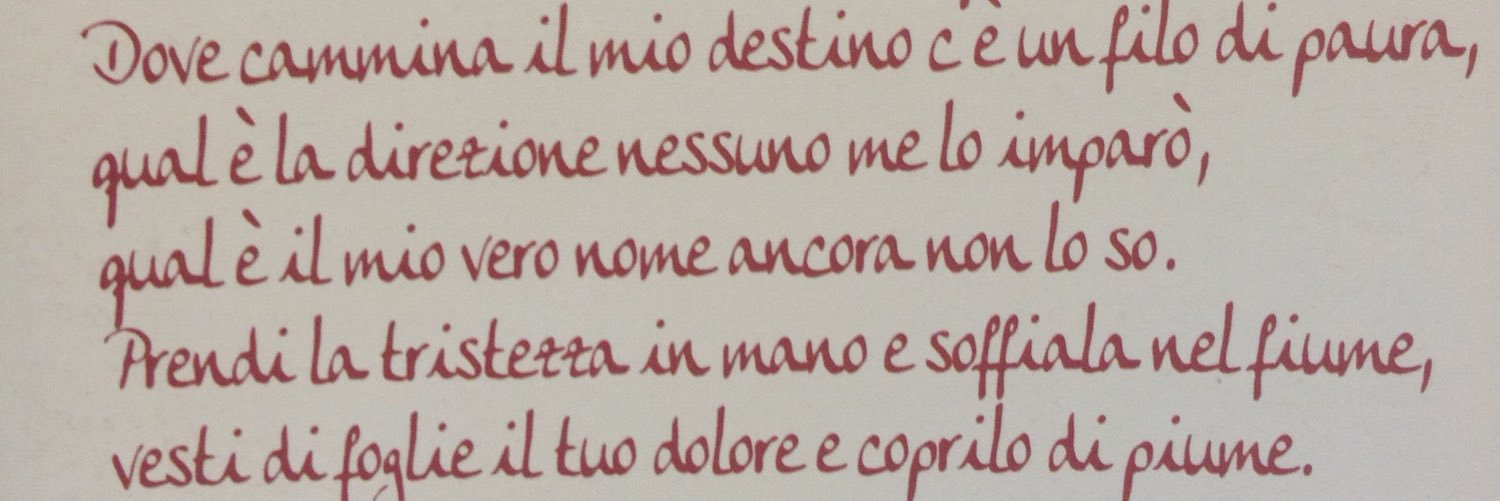 Dove cammina il mio destino c'è un filo di paura,
qual è la direzione nessuno me lo imparò,
qual è il mio vero nome ancora non lo so.
Prendi la tristezza in mano e soffiala nel fiume,
vesti di foglie il tuo dolore e coprilo di piume.